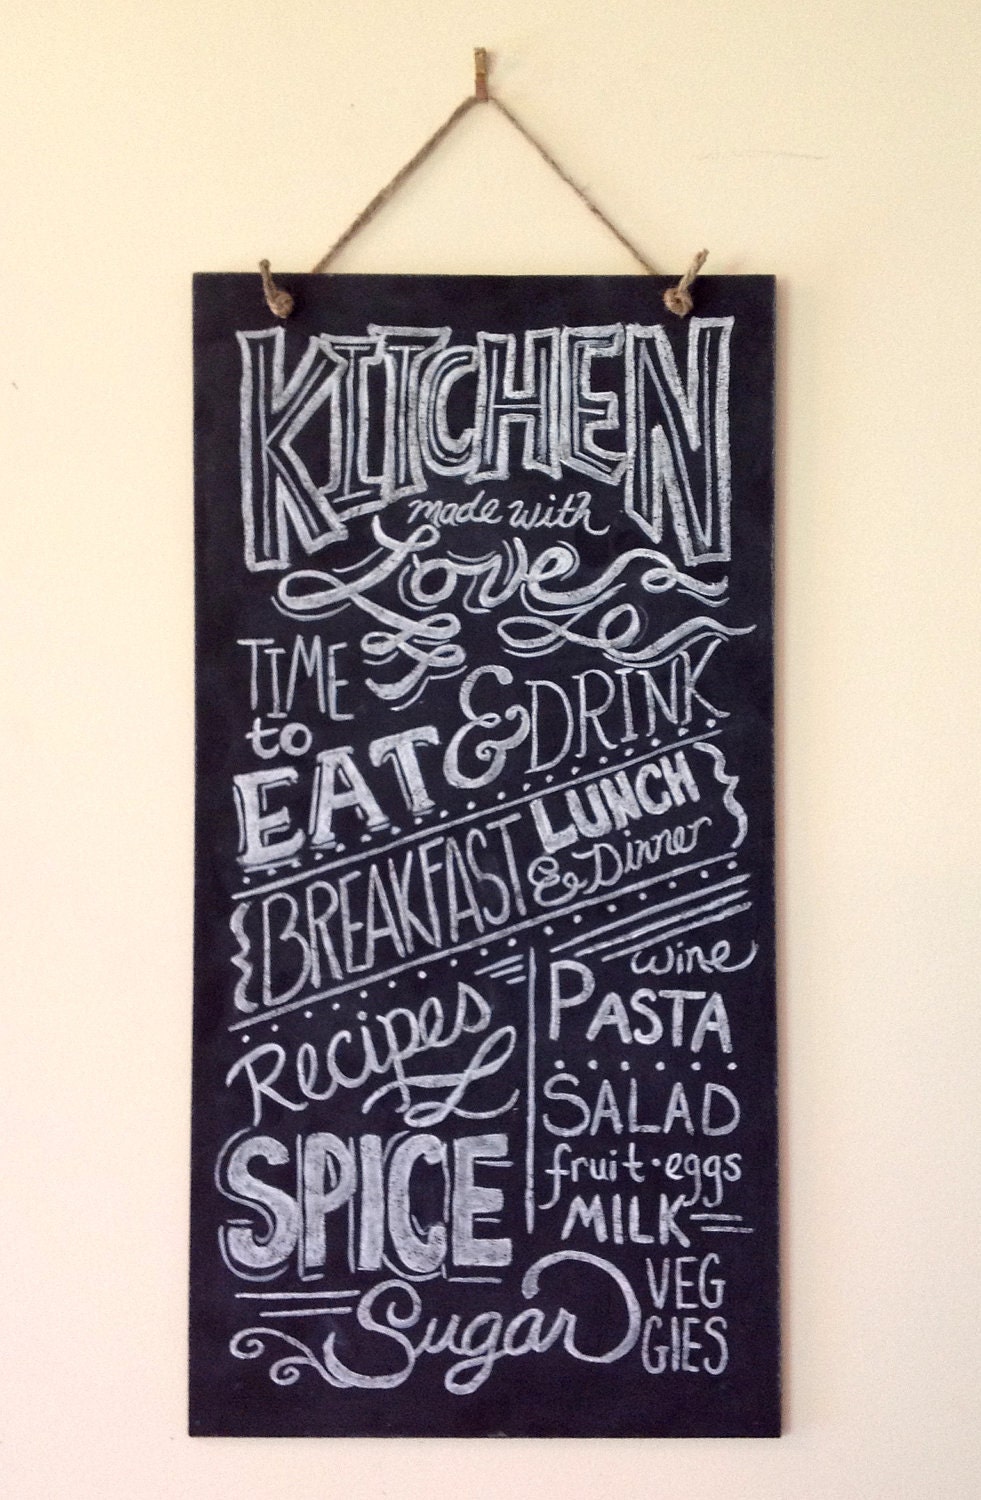 KITCHEN
made with
Love
TIME
to
EAT & DRINK
BREAKFAST LUNCH
& Dinner
Recipes
SPICE
Sugar
wine
PASTA
SALAD
fruit • eggs
MILK
VEG
GIES